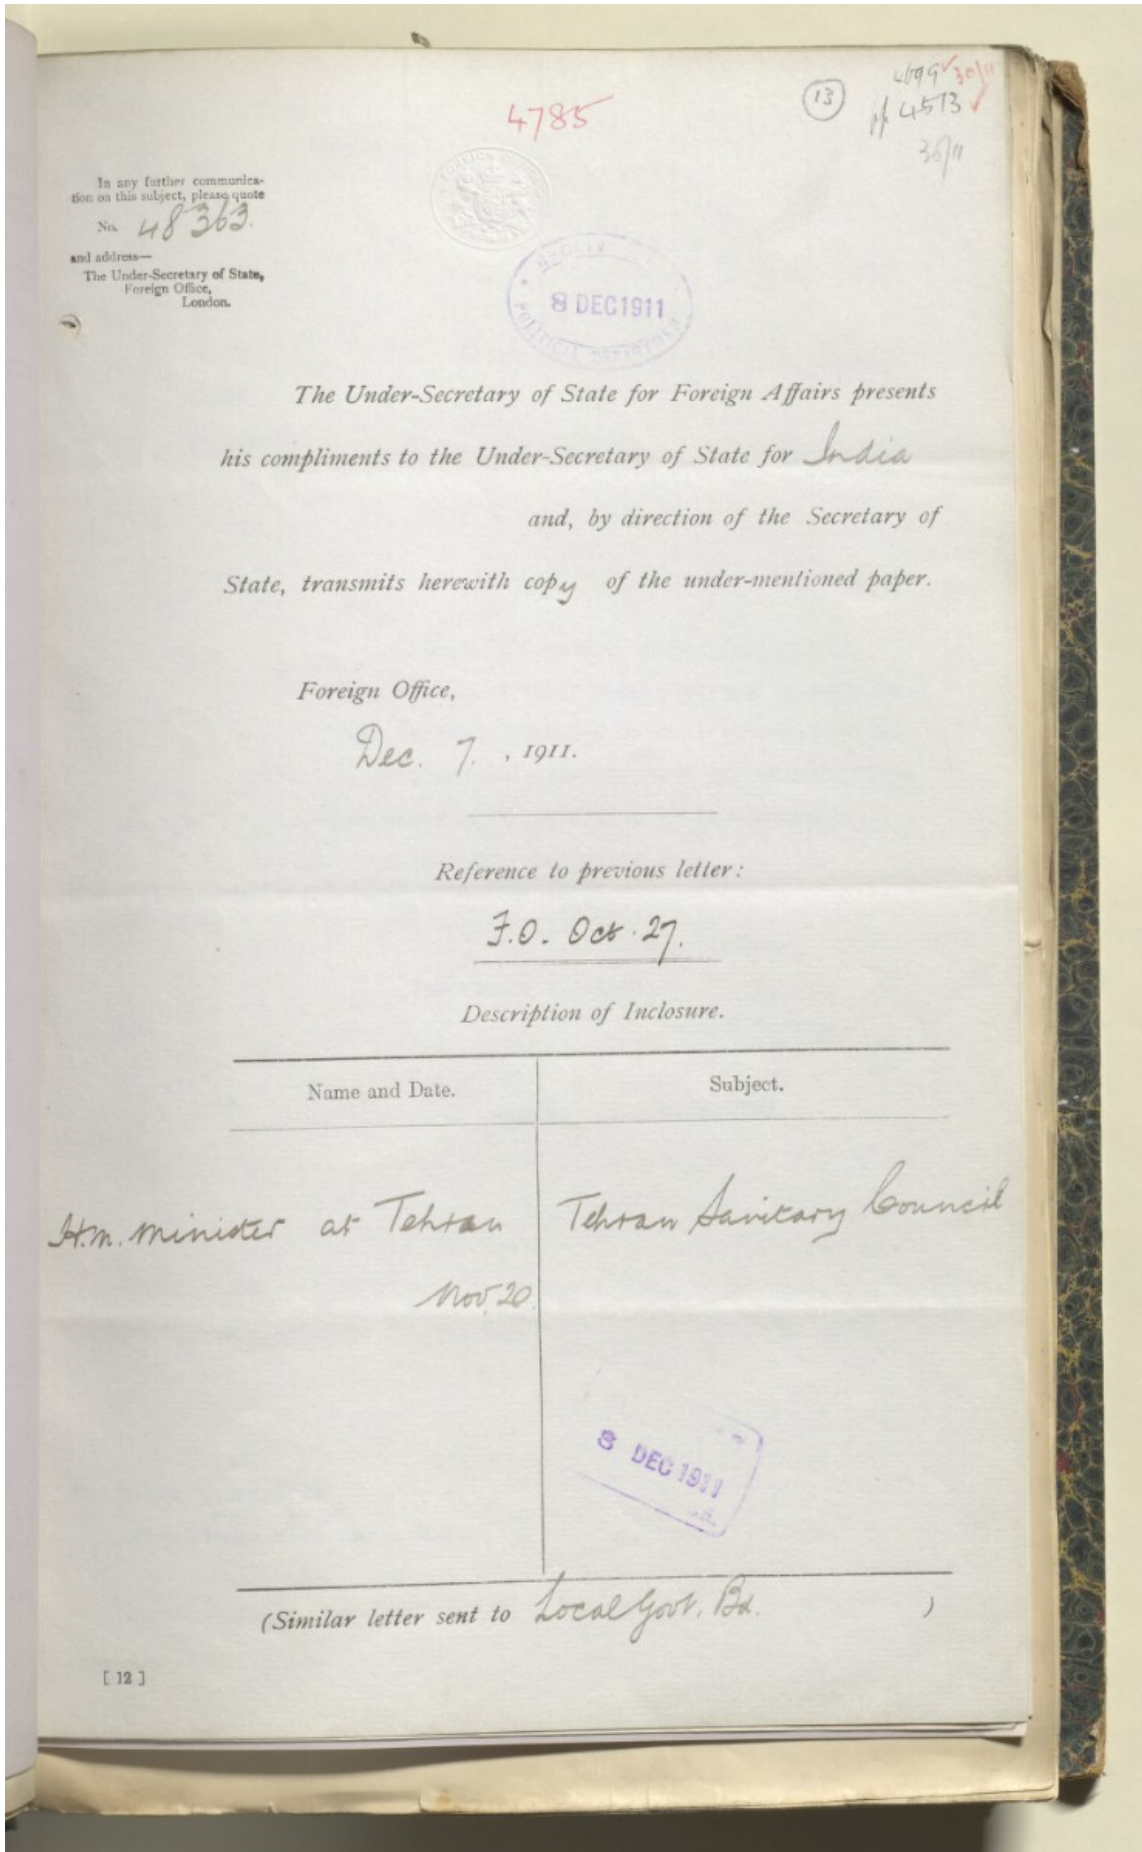 4785
13
4699 30/11
pp 4513
30/11
In any further communica-
tion on this subject, please quote
No. 48363.
and address—
The Under-Secretary of State,
Foreign Office,
London.
FOREIGN
8 DEC 1911
POLITICAL DEPARTMENT
The Under-Secretary of State for Foreign Affairs presents
his compliments to the Under-Secretary of State for India
and, by direction of the Secretary of
State, transmits herewith copy of the under-mentioned paper.
Foreign Office,
Dec. 7. , 1911.
Reference to previous letter:
F.O. Oct. 27.
Description of Inclosure.
Name and Date.
Subject.
H.M. Minister at Tehran
Tehran Sanitary Council
Nov. 20.
8 DEC 1911
(Similar letter sent to Local Govt. Bd. )
[ 12 ]